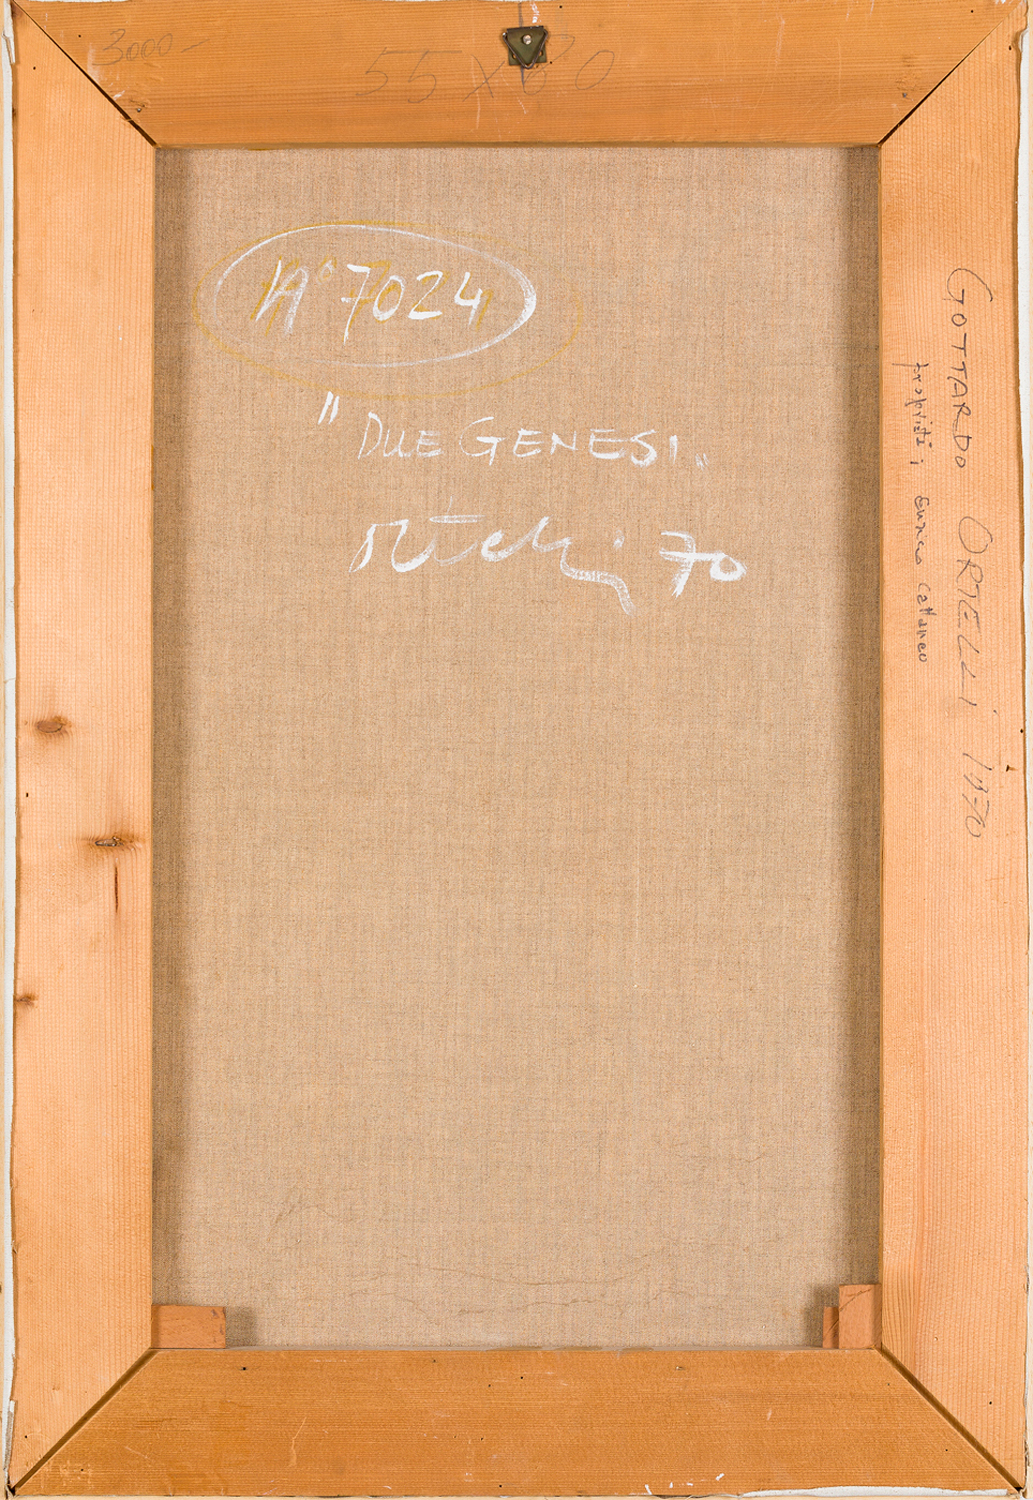 3000 -
55 X 80
N° 7024
"DUE GENESI"
Ortelli 70
GOTTARDO ORTELLI 1970
proprietà; Enrico Cattaneo